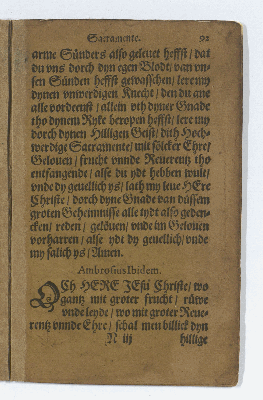 Sacramente. 92
arme Sünders also geleuet heffst / dat
du vns dorch dyn egen Blodt / van vn-
sen Sünden heffst gewasschen / lere my
dynen vnwerdigen Knecht / den du ane
alle vordeenst / allein vth dyner Gnade
tho dynem Ryke beropen heffst / lere my
dorch dynen Hilligen Geist / dith Hoch-
werdige Sacramente / mit sölcker Ehre /
Gelouen / frucht vnnde Reuerentz tho
entfangende / alse du ydt hebben wult /
vnde dy geuellich ys / lath my leue HEre
Christe / dorch dyne Gnade van düssem
groten Geheimnisse alle tydt also geden-
cken / reden / gelöuen / vnde im Gelouen
vorharren / alse ydt dy geuellich / vnde
my salich ys / Amen.
Ambrosius Ibidem.
OCh HERE JEsu Christe / wo
gantz mit groter frucht / rüwe
vnde leyde / wo mit groter Reue-
rentz vnnde Ehre / schal men billick dyn
N iij hillige